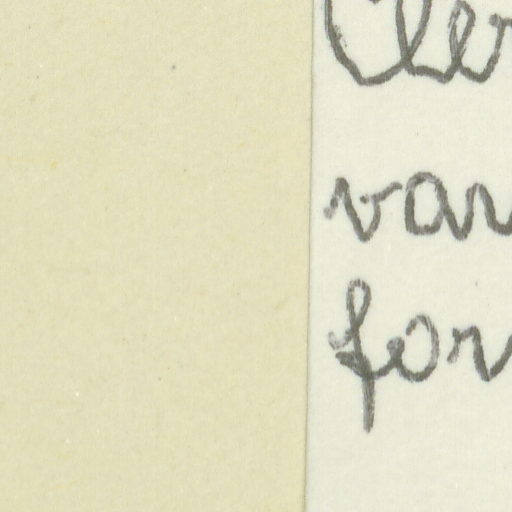 Cler
var
for